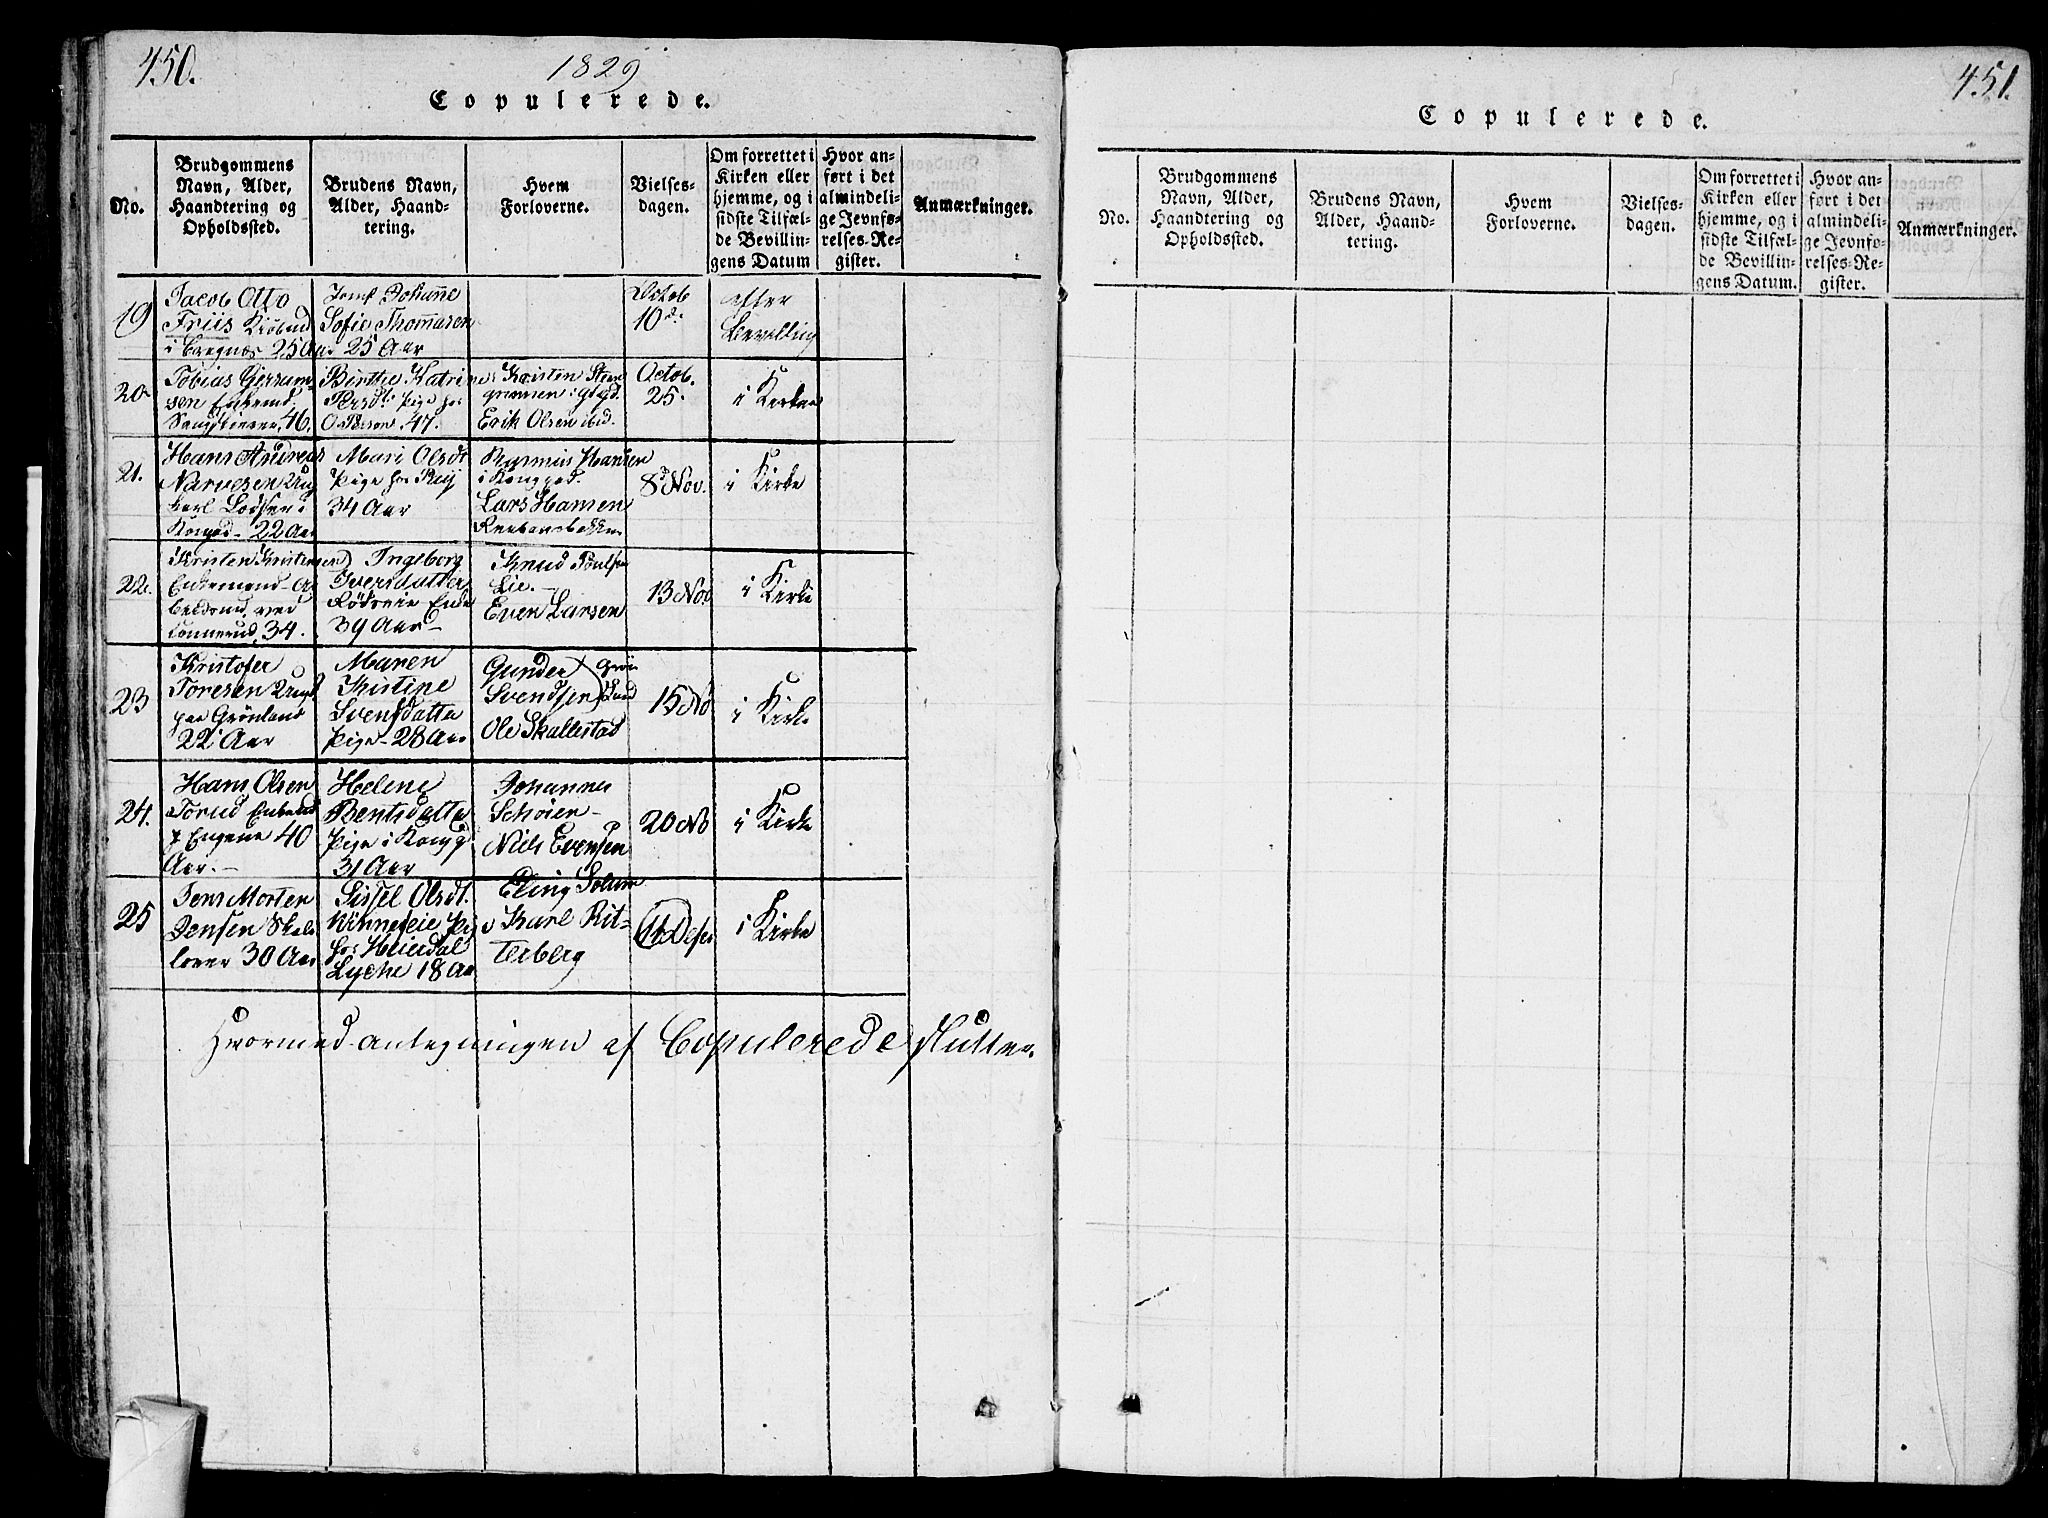 450.
1829
Copulerede.
No.
Brudgommens Navn, Alder, Haandtering og Opholdssted.
Brudens Navn, Alder, Haandtering.
Hvem Forloverne.
Vielsesdagen.
Om forrettet i Kirken eller hjemme, og i sidste Tilfælde Bevillingens Datum
Hvor anført i det almindelige Jevnførelses-Register.
Anmærkninger.
19
Jacob Otto
Friis
25 Aar
Jomf Johanne
Sofie Thomasen
25 Aar
Octob
10
efter
Bevilling
20
Tobias
sen
46.
Birthe Katrine
Persdt. Pige hos
47.
Kristen
Erik Olsen ibid.
Octob.
25.
i Kirken
21.
Hans Andreas
Narvesen Ung
karl
22 Aar
Mari Olsdt
Pige hos
34 Aar
Rasmus Hansen
Lars Hansen
8 Nov.
i Kirke
22.
Kristen Kristensen
Enkemand
34.
Ingeborg
Iversdatter
39 Aar
Knud Poulsen
Lie.
Even Larsen
13 Nov
i Kirke
23
Kristofer
Toresen Ungk
paa Grönland
22 Aar
Maren
Kistine
Svensdatter
Pige 28 Aar
Gunder
Svendsen
Ole Skallestad
15 No
i Kirke
24.
Hans Olsen
Torud Enkemd
p Engene 40
Aar.
Helene
Bentsdatter
Pige i Kongsg
31 Aar
Johannes
Schöien
Niels Evensen
20 No
i Kirke
25
Jens Morten
Jensen
30 Aar
Sissel Olsdt.
hos Heierdal
Lyche 18 Aar
Eling Solum
Karl Rit-
terberg
i Kirke
Hvormed antegningen af Copulerede slutter.
451.
Copulerede.
No.
Brudgommens Navn, Alder, Haandtering og Opholdssted.
Brudens Navn, Alder, Haandtering.
Hvem Forloverne.
Vielsesdagen.
Om forrettet i Kirken eller hjemme, og i sidste Tilfælde Bevillingens Datum.
Hvor anført i det almindelige Jevnførelses-Register.
Anmærkninger.